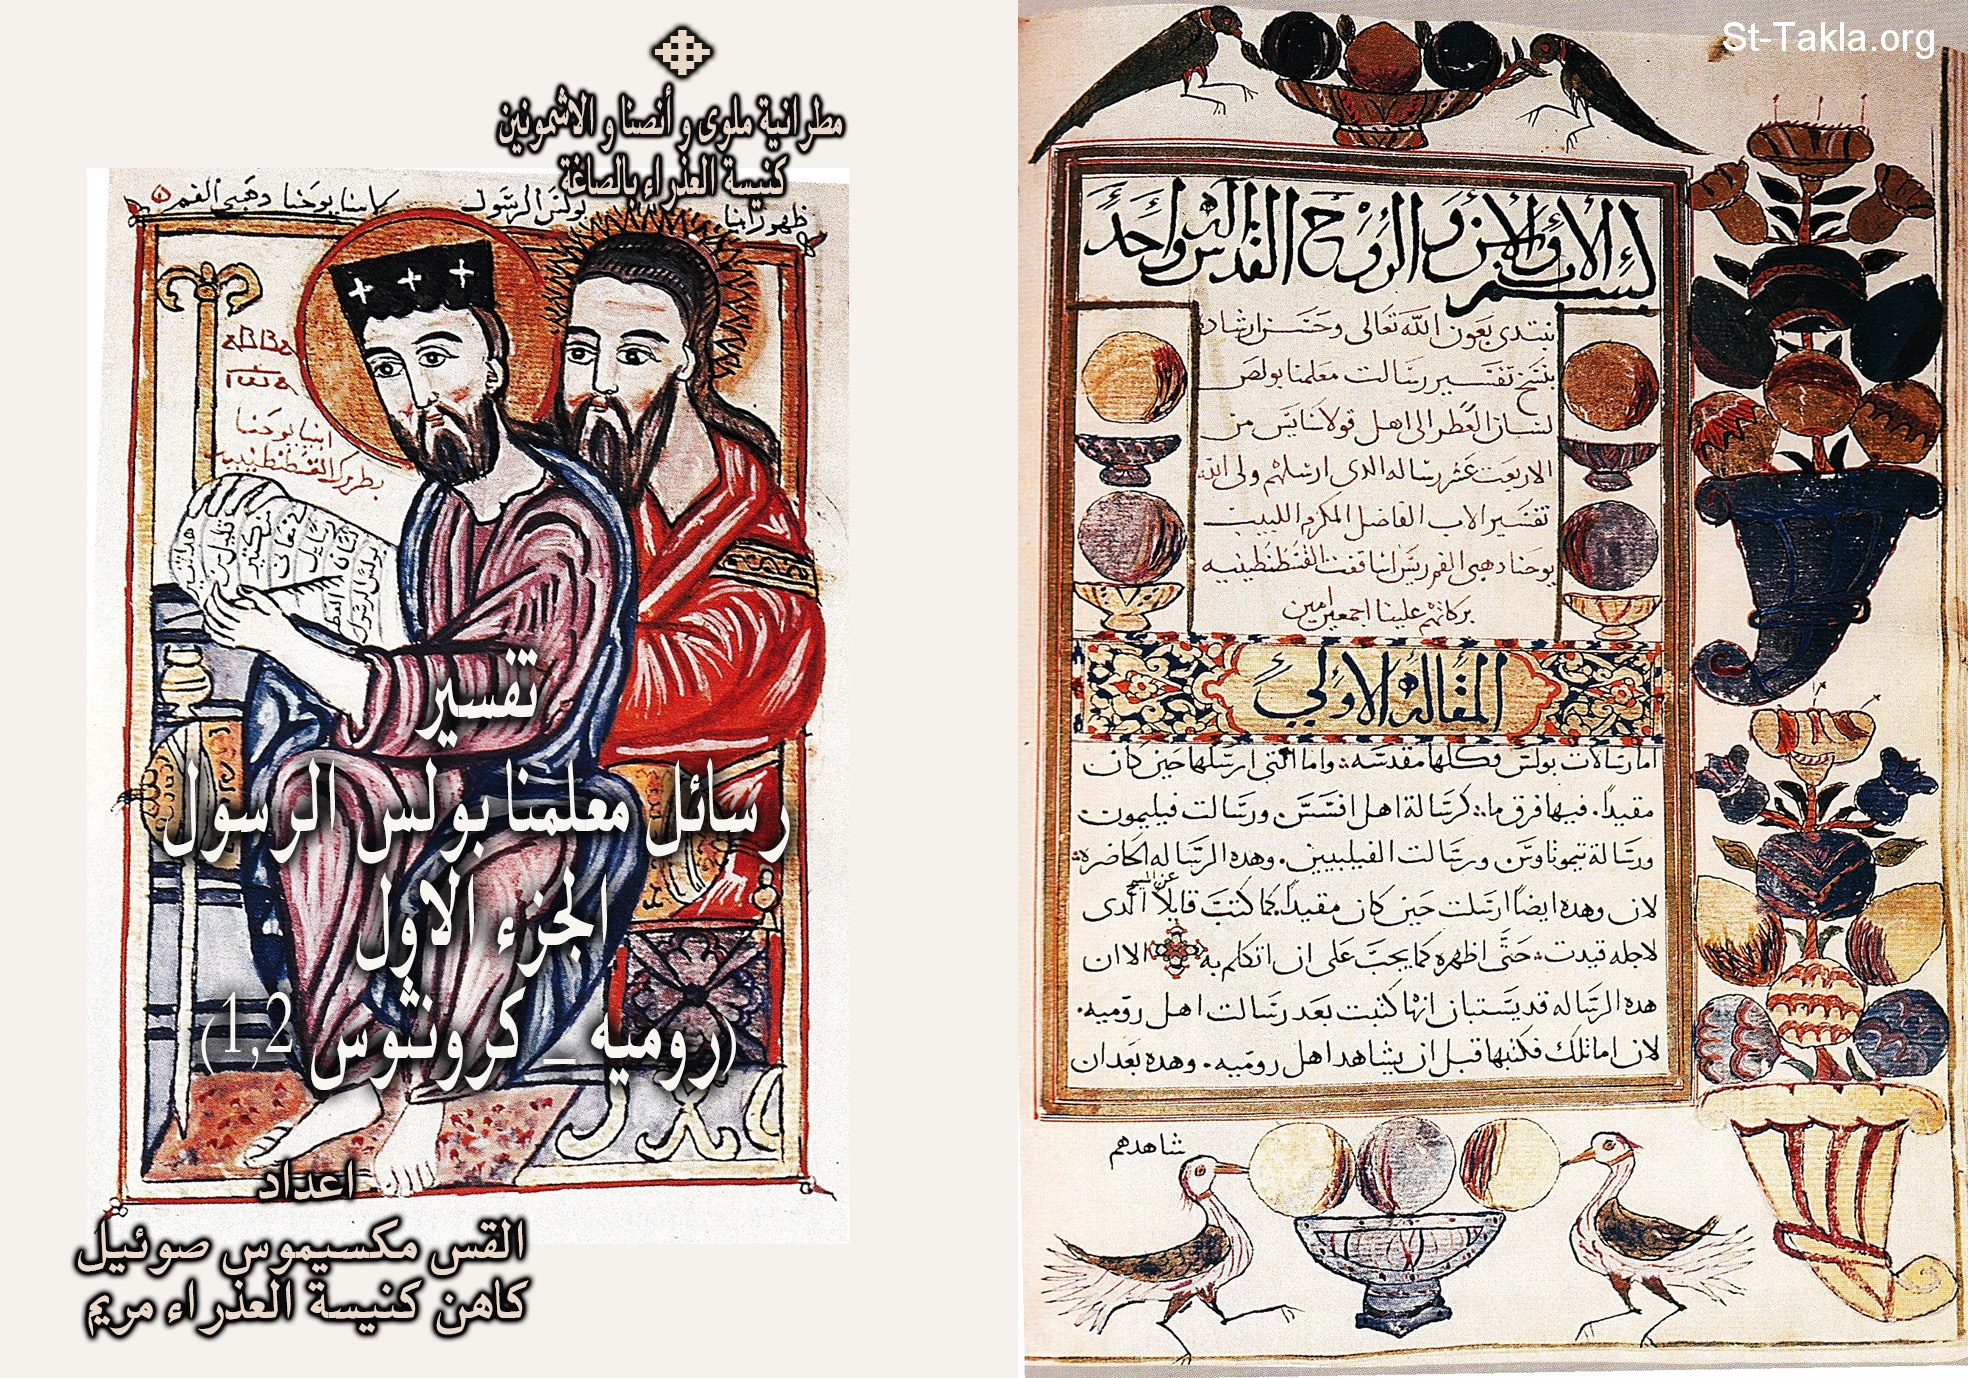 مطرانية ملوى و أنصنا و الاشمونين
كنيسة العذراء بالصاغة
ظهور ابنا بولس الرسول لابينا يوحنا دهبي الفم
ابينا يوحنا
بطريرك القسطنطينيه
تفسير
رسائل معلمنا بولس الرسول
الجزء الاول
(رومية _ كرونثوس 1,2)
اعداد
القس مكسيموس صوئيل
كاهن كنيسة العذراء مريم
St-Takla.org
بسم الاب والابن والروح القدس اله واحد
نبتدى بعون الله تعالى وحسن ارشاده
بنسخ تفسير رسالت معلمنا بولص
لسان العطر الى اهل قولاسايس من
الاربعت عشر رساله الدى ارسلهم ولى الله
تفسير الاب الفاضل المكرم اللبيب
يوحنا دهبى الفم ريس اساقفت القسطنطينيه
بركاتهم علينا اجمعين امين
المقاله الاولي
اما رسالات بولس فكلها مقدسه وأما التى ارسلها حين كان
مقيداً. فيها فرق ما: كرسالة اهل افسس ورسالت فيليمون
ورسالة تيموتاوس ورسالت الفيلبيين. وهده الرساله الحاضره
لان وهده ايضاً ارسلت حين كان مقيداً. كما كتب قايلاً عن المسيح الدى
لاجله قيدت: حتى اظهره كما يجب على ان اتكلم به الا ان
هده الرساله قد يستبان انها كتبت بعد رسالت اهل روميه.
لان اما تلك فكتبها قبل ان يشاهد اهل روميه. وهده بعد ان
شاهدهم